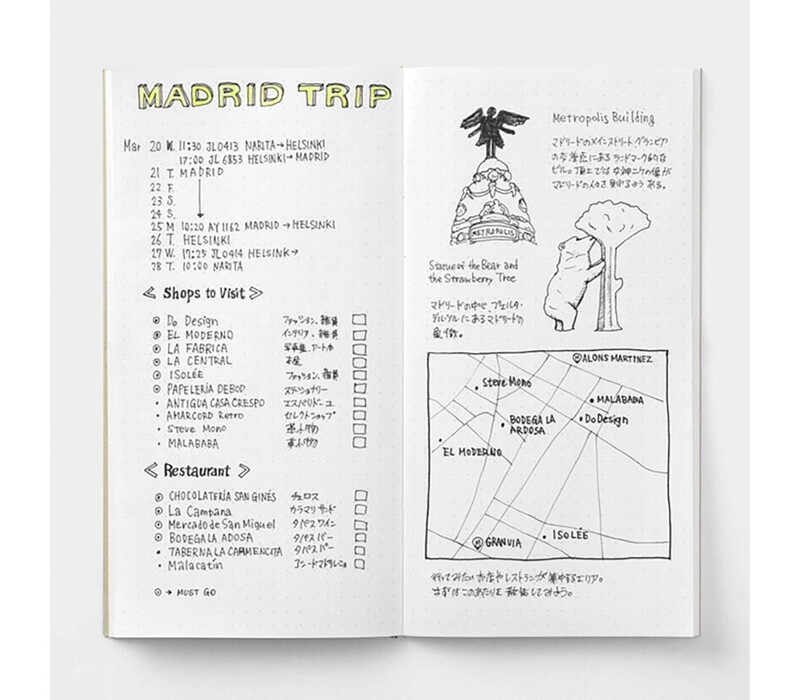 MADRID TRIP
Mar 20 W. 11:30 JL0413 NARITA→HELSINKI
17:00 JL 6853 HELSINKI→MADRID
21 T. MADRID
22 F.
23 S.
24 S.
25 M 10:20 AY1162 MADRID→HELSINKI
26 T. HELSINKI
27 W. 17:25 JL0414 HELSINK→
28 T. 10:00 NARITA
≪ Shops to Visit ≫
◉ Do Design ファッション、雑貨
◉ EL MODERNO インテリア、雑貨
◉ LA FABRICA 写真集、アート本
◉ LA CENTRAL 本屋
◉ ISOLÉE ファッション、雑貨
◉ PAPELERÍA DEBOD ステーショナリー
• ANTIGUA CASA CRESPO エスパドリーユ
• AMARCORD Retro セレクトショップ
• Steve Mono 革小物
• MALABABA 革小物
≪ Restaurant ≫
◉ CHOCOLATERÍA SAN GINÉS チュロス
◉ La Campana カラマリサンド
◉ Mercado de San Miguel タパスワイン
◉ BODEGA LA ADOSA タパスバー
• TABERNA LA CARMENCITA タパスバー
• Malacatín
◉ → MUST GO
Metropolis Building
マドリードのメインストリート、グランビア
の交差点にあるランドマーク的な
ビル。頂上では女神ニケの像が
マドリードの人々を
METROPOLIS
Statue of the Bear and
the Strawberry Tree
マドリードの中心、プエルタ・
デル・ソルにあるマドリードの
象徴。
ALONS MARTINEZ
Steve Mono
MALABABA
BODEGA LA
ADOSA
Do Design
EL MODERNO
GRANVIA
ISOLÉE
行ってみたいお店やレストランが集中するエリア。
まずはこのあたりを散策してみよう。